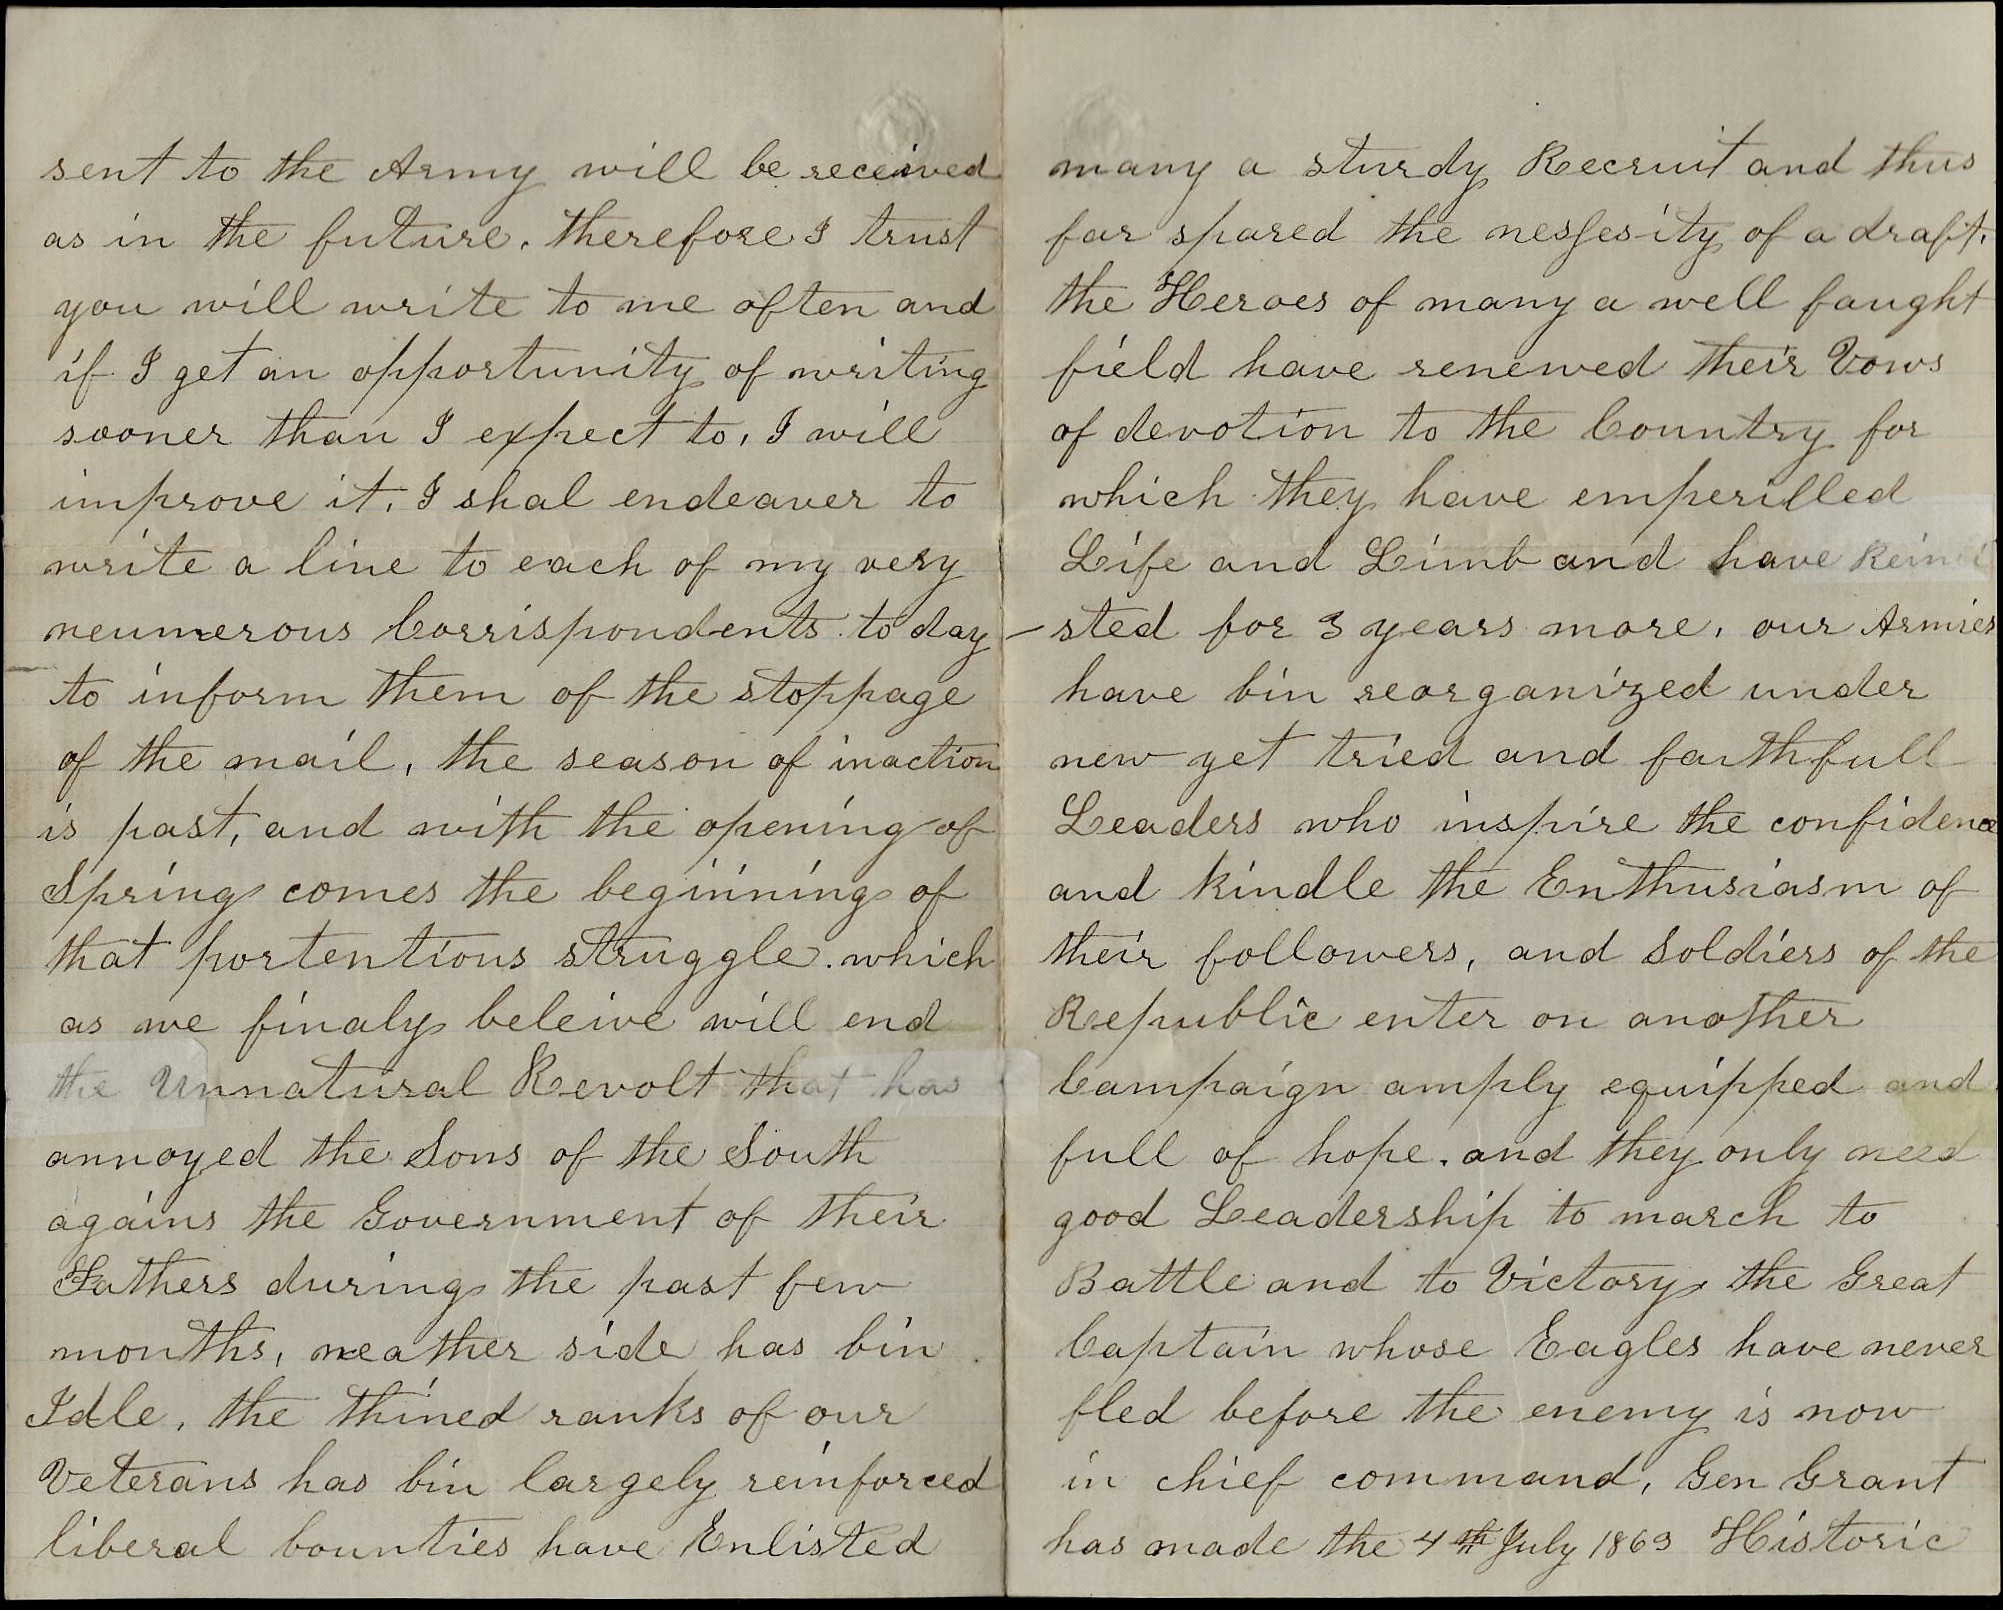 sent to the Army will be received
as in the future. therefore I trust
you will write to me often and
if I get an opportunity of writing
sooner than I expect to, I will
improve it. I shal endeaver to
write a line to each of my very
neumerous Corrispondents to day
to inform them of the stoppage
of the mail, the season of inaction
is past, and with the opening of
Spring comes the beginning of
that portentious struggle. which
as we finaly beleive will end
the Unnatural Revolt that has
annoyed the Sons of the South
agains the Government of their
Fathers during the past few
months, neather side has bin
Idle, the thined ranks of our
Veterans has bin largely reinforced
liberal bounties have Enlisted
many a sturdy Recruit and thus
far spared the nessesity of a draft.
the Heroes of many a well faught
field have renewed their Vows
of devotion to the Country for
which they have emperilled
Life and Limb and have
sted for 3 years more, our Armies
have bin reorganized under
new yet tried and faithfull
Leaders who inspire the confidence
and kindle the Enthusiasm of
their followers, and Soldiers of the
Republic enter on another
Campaign amply equipped and
full of hope. and they only need
good Leadership to march to
Battle and to Victory the Great
Captain whose Eagles have never
fled before the enemy is now
in chief command, Gen Grant
has made the 4th July 1863 Historic